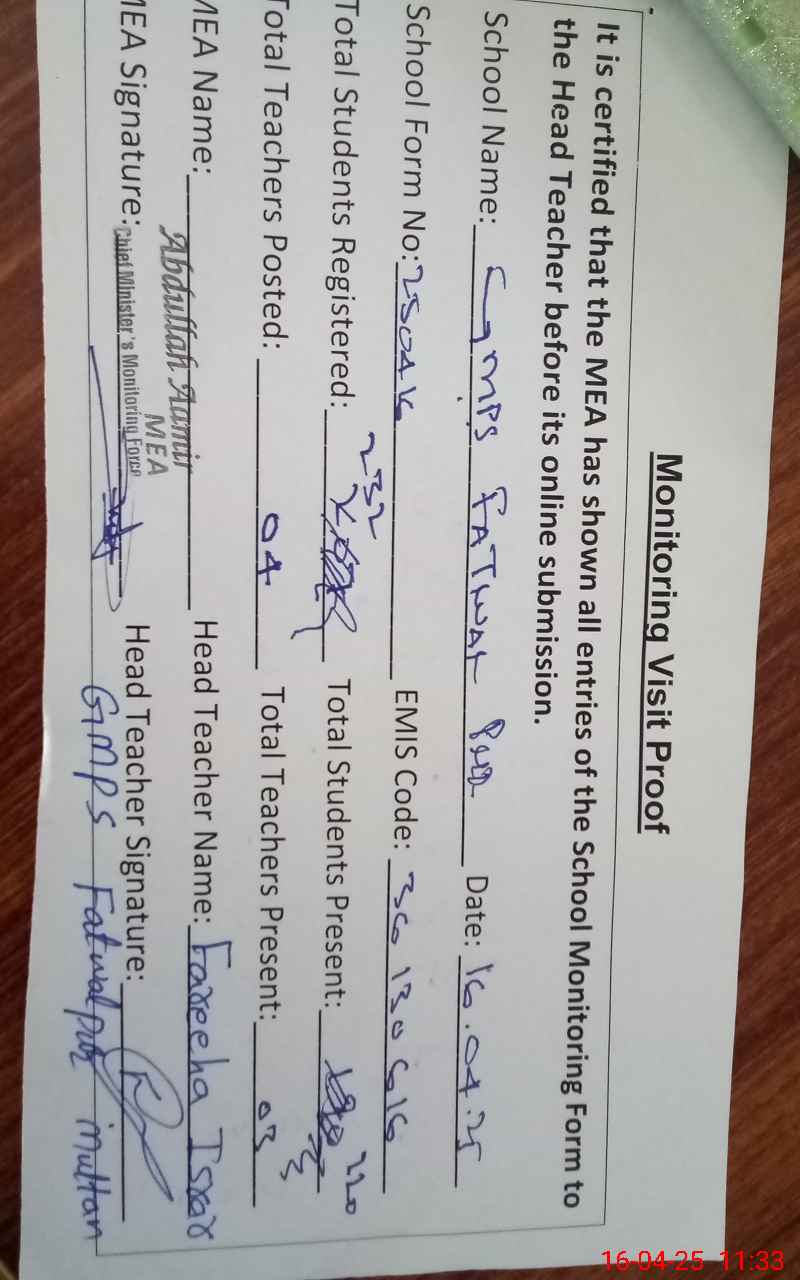 Monitoring Visit Proof
It is certified that the MEA has shown all entries of the School Monitoring Form to
the Head Teacher before its online submission.
School Name: GMPS FATWAL PUR Date: 16.04.25
School Form No: 250416 EMIS Code: 36130616
Total Students Registered: 232 Total Students Present: 220
Total Teachers Posted: 04 Total Teachers Present: 03
MEA Name: Abdullah Aamir Head Teacher Name: Fareeha Israr
MEA
MEA Signature: Chief Minister's Monitoring Force Head Teacher Signature:
GMPS Fatwalpur Multan
16-04-25 11:33